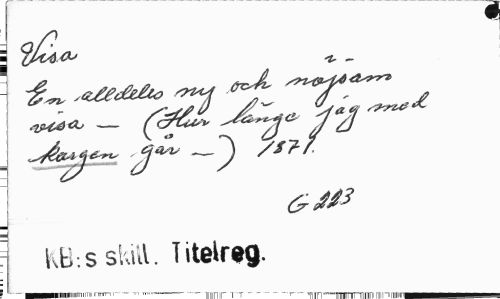 Visa
En alldeles ny och nöjsam
visa — (Hur länge jag med
korgen går —) 1871.
G 223
KB:s skill. Titelreg.